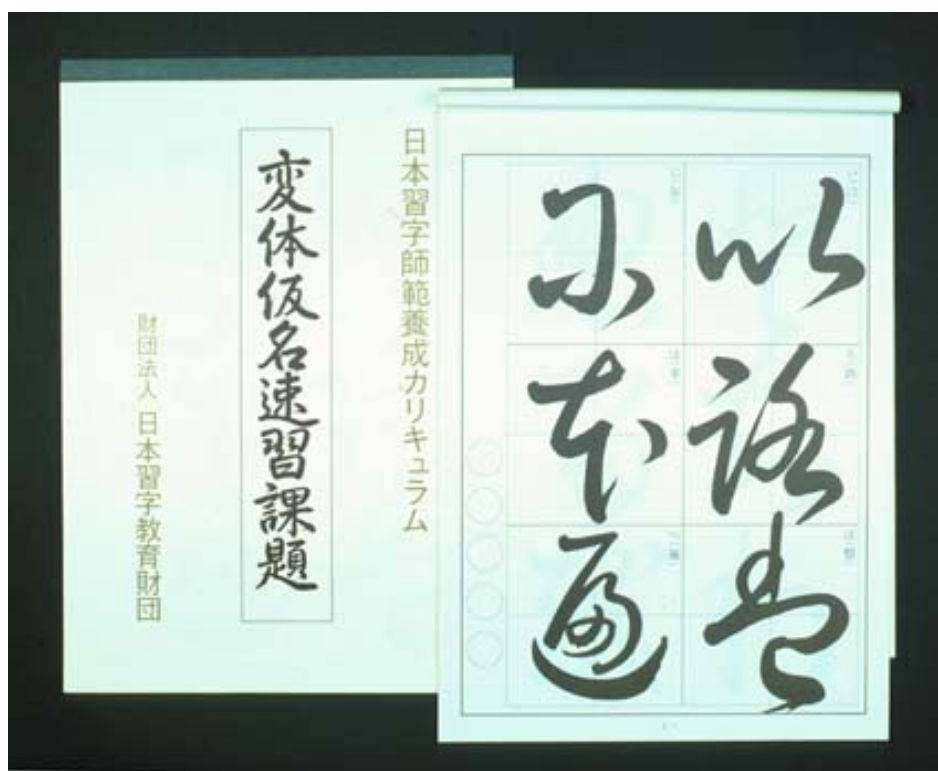 日本習字師範養成カリキュラム
変体仮名速習課題
財団法人 日本習字教育財団
以路
尓本遍